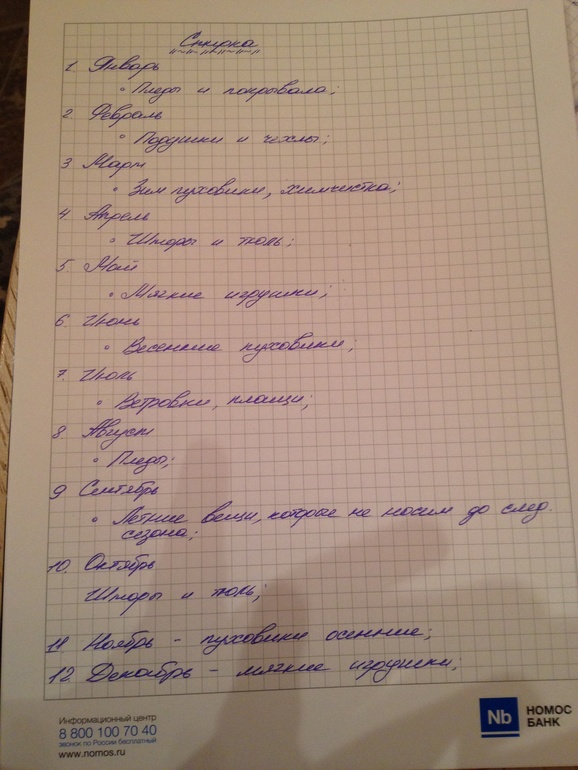 Стирка
1 Январь
• Пледы и покрывала;
2. Февраль
• Подушки и чехлы;
3 Март
• Зим пуховики, химчистка;
4. Апрель
• Шторы и тюль;
5. Май
• Мягкие игрушки;
6. Июнь
• Весенние пуховики;
7. Июль
• Ветровки, плащи;
8. Август
• Пледы;
9 Сентябрь
• Летние вещи, которые не носим до след.
сезона;
10. Октябрь
Шторы и тюль;
11 Ноябрь - пуховики осенние;
12 Декабрь - мягкие игрушки;
Информационный центр
8 800 100 70 40
звонок по России бесплатный
www.nomos.ru
Nb НОМОС
БАНК